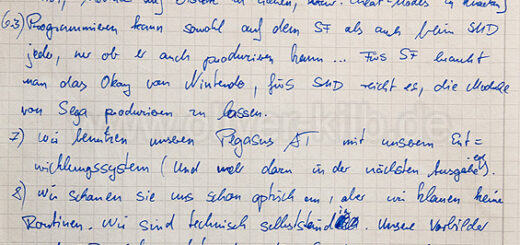 6.3) Programmieren kann sowohl auf dem SF als auch beim SMD
jeder, nur ob er auch produzieren kann ... Fürs SF braucht
man das Okay von Nintendo, fürs SMD reicht es, die Module
von Sega produzieren zu lassen.
7) Wir benutzen unseren Pegasus AT mit unserem Ent=
wicklungssystem (Und mehr dazu in der nächsten Ausgabe).
8) Wir schauen sie uns schon optisch an, aber wir klauen keine
Routinen. Wir sind technisch selbstständig. Unsere Vorbilder